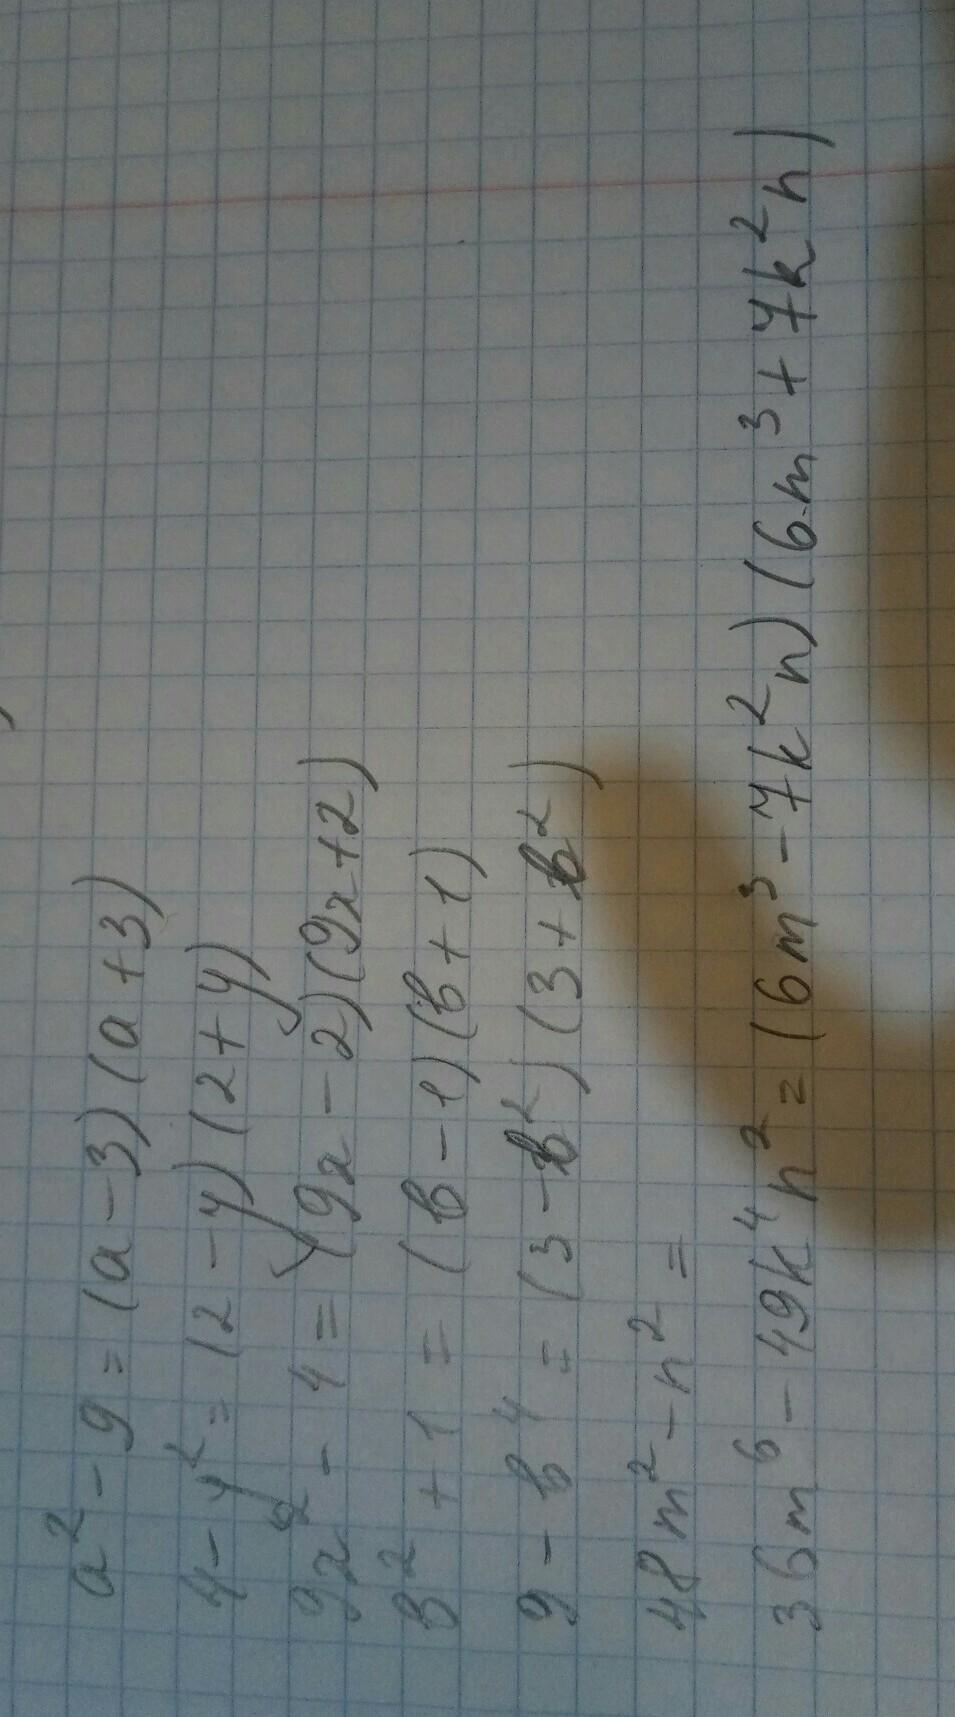 a² - 9 = (a - 3)(a + 3)
4 - y² = (2 - y)(2 + y)
9x² - 4 = (9x - 2)(9x + 2)
b² + 1 = (b - 1)(b + 1)
9 - b⁴ = (3 - b²)(3 + b²)
48m² - n² =
36m⁶ - 49k⁴n² = (6m³ - 7k²n)(6m³ + 7k²n)